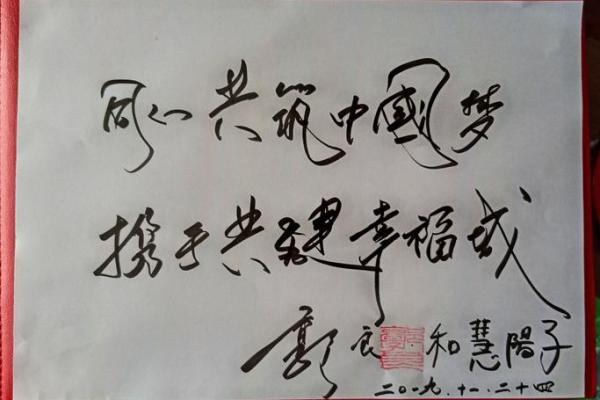 同心共筑中國梦
携手共建幸福城
良 和慧陽子
二〇一九.十一.二十四